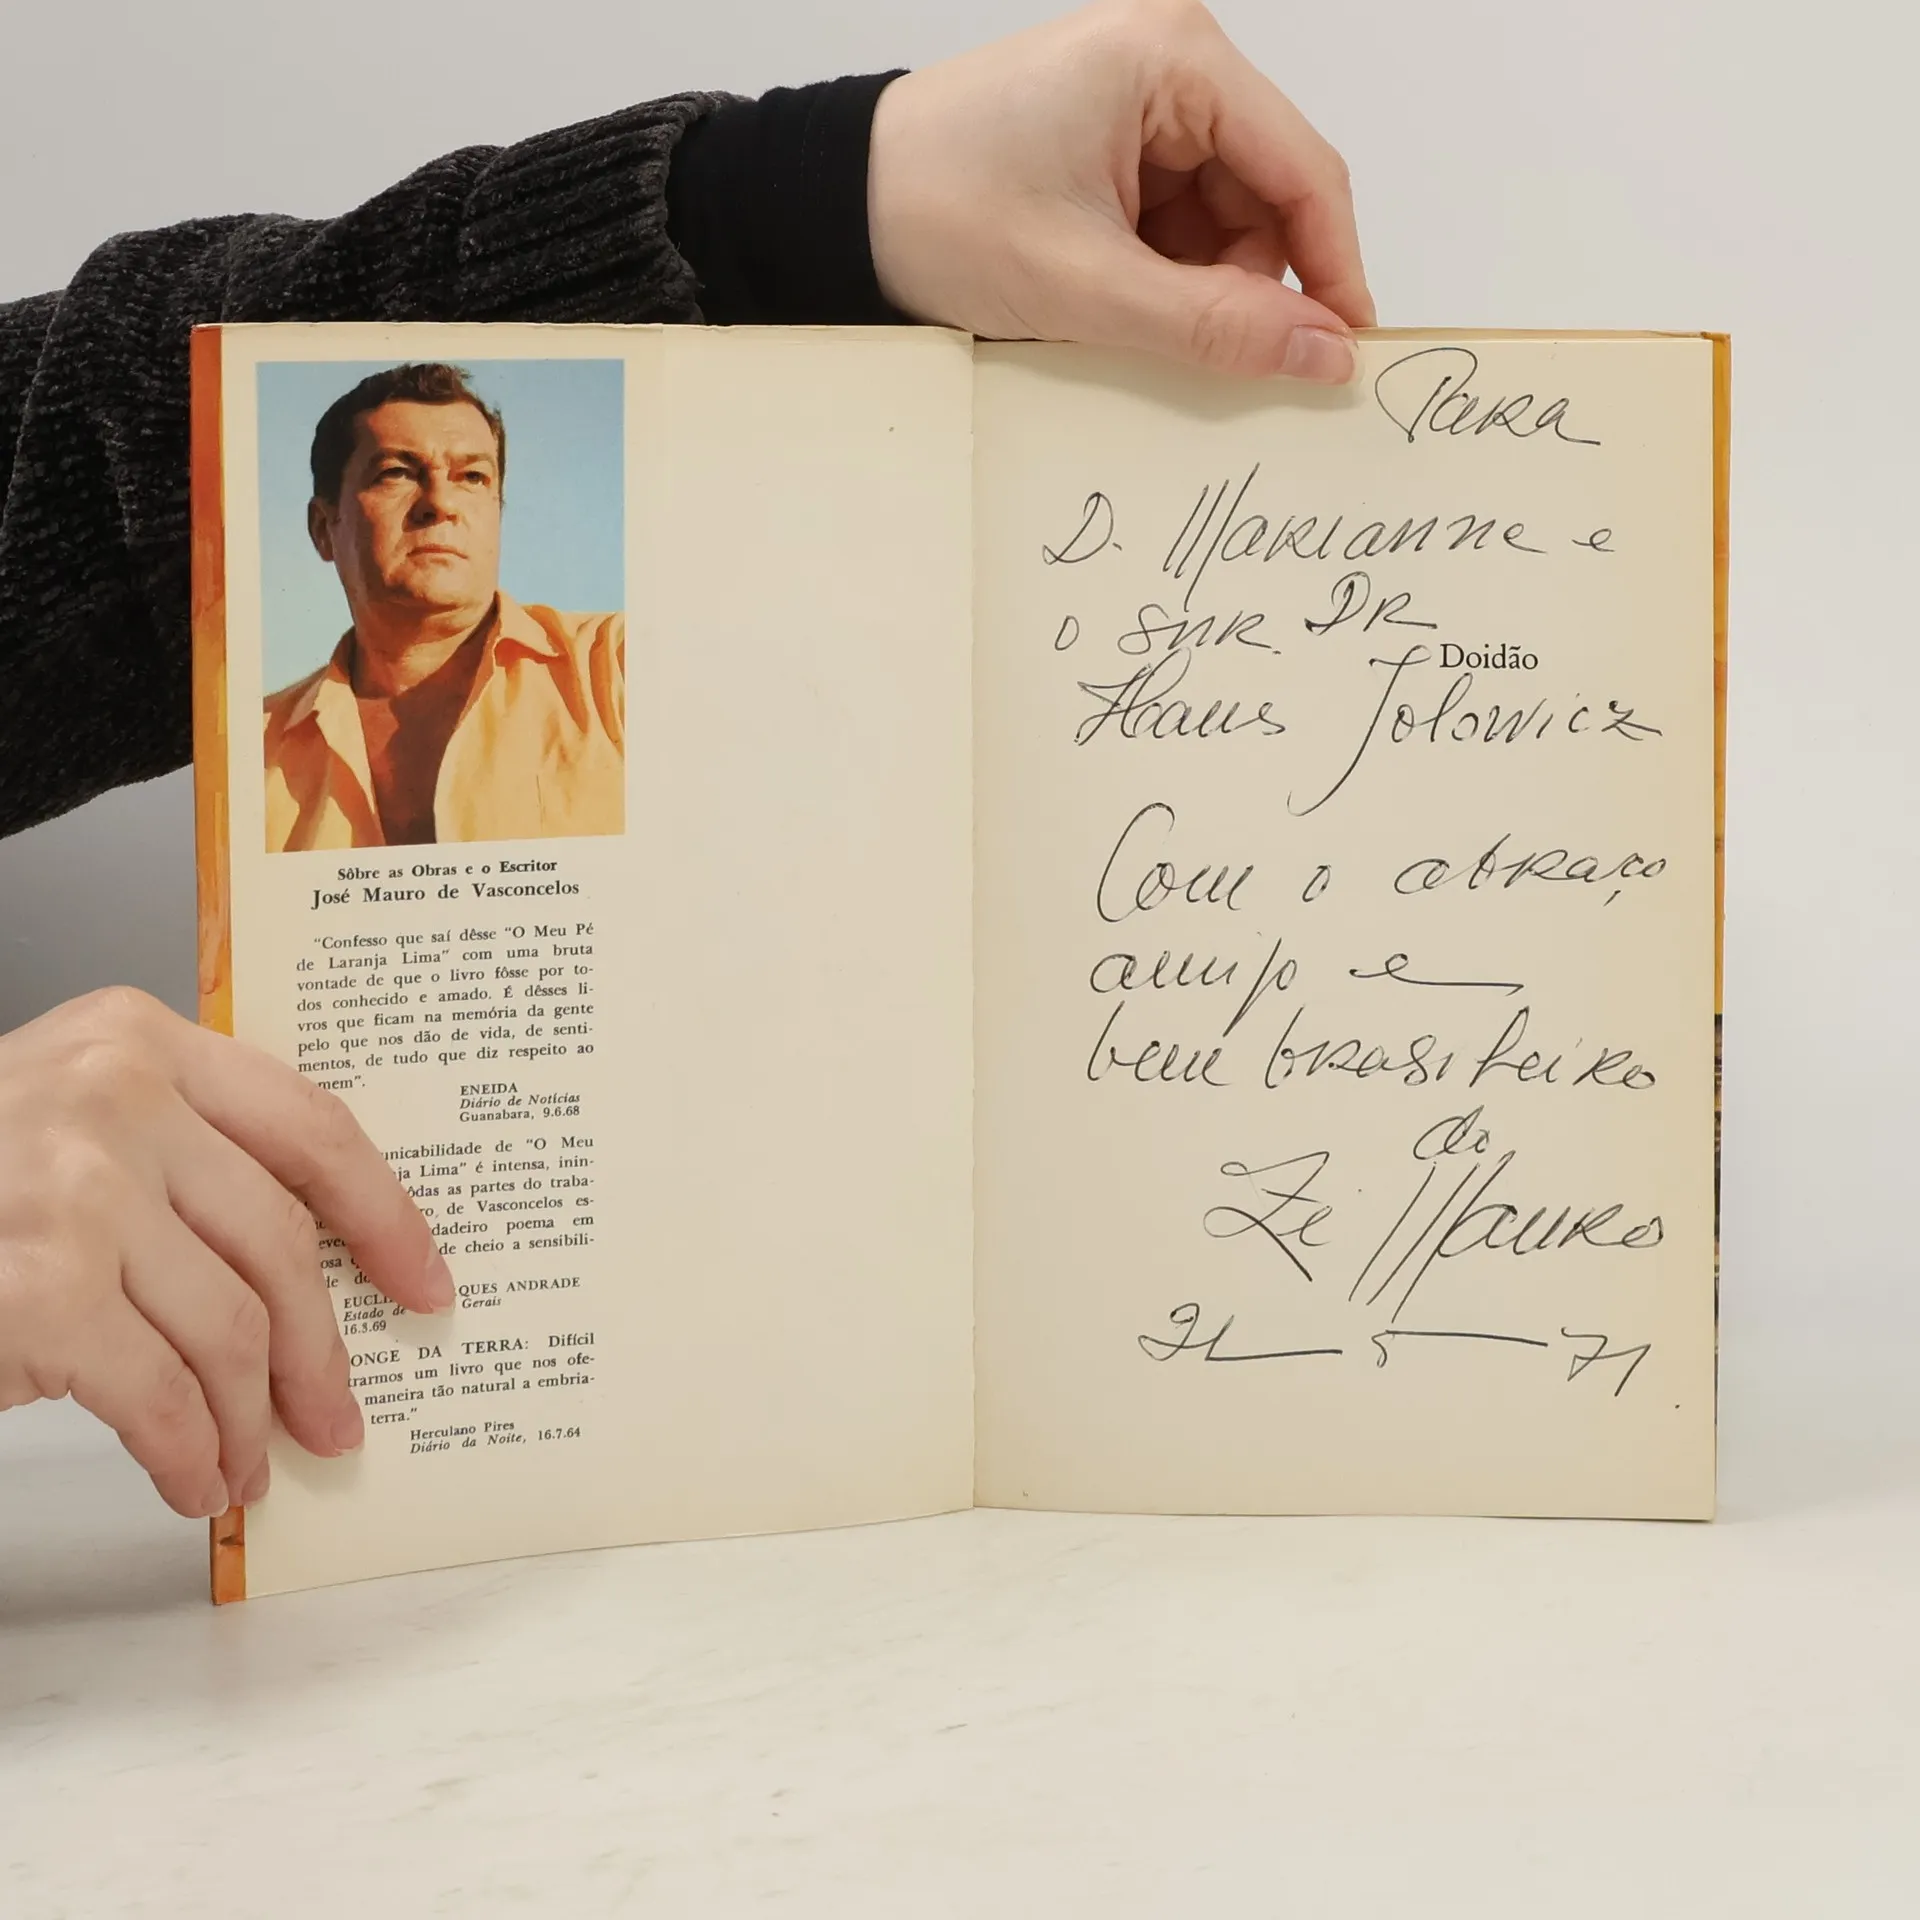 Sôbre as Obras e o Escritor
José Mauro de Vasconcelos
"Confesso que saí dêsse "O Meu Pé
de Laranja Lima" com uma bruta
vontade de que o livro fôsse por to-
dos conhecido e amado. É dêsses li-
vros que ficam na memória da gente
pelo que nos dão de vida, de senti-
mentos, de tudo que diz respeito ao
mem".
ENEIDA
Diário de Notícias
Guanabara, 9.6.68
unicabilidade de "O Meu
ja Lima" é intensa, inin-
ôdas as partes do traba-
ro, de Vasconcelos es-
dadeiro poema em
de cheio a sensibili-
osa
de do
EUCLI QUES ANDRADE
Estado de Gerais
16.3.69
ONGE DA TERRA: Difícil
trarmos um livro que nos ofe-
maneira tão natural a embria-
terra."
Herculano Pires
Diário da Noite, 16.7.64
Para
D. Marianne e
o snr. DR
Doidão
Hans Jolowicz
Com o abraço
amigo e
bem brasileiro
do
Zé Mauro
5 - 71